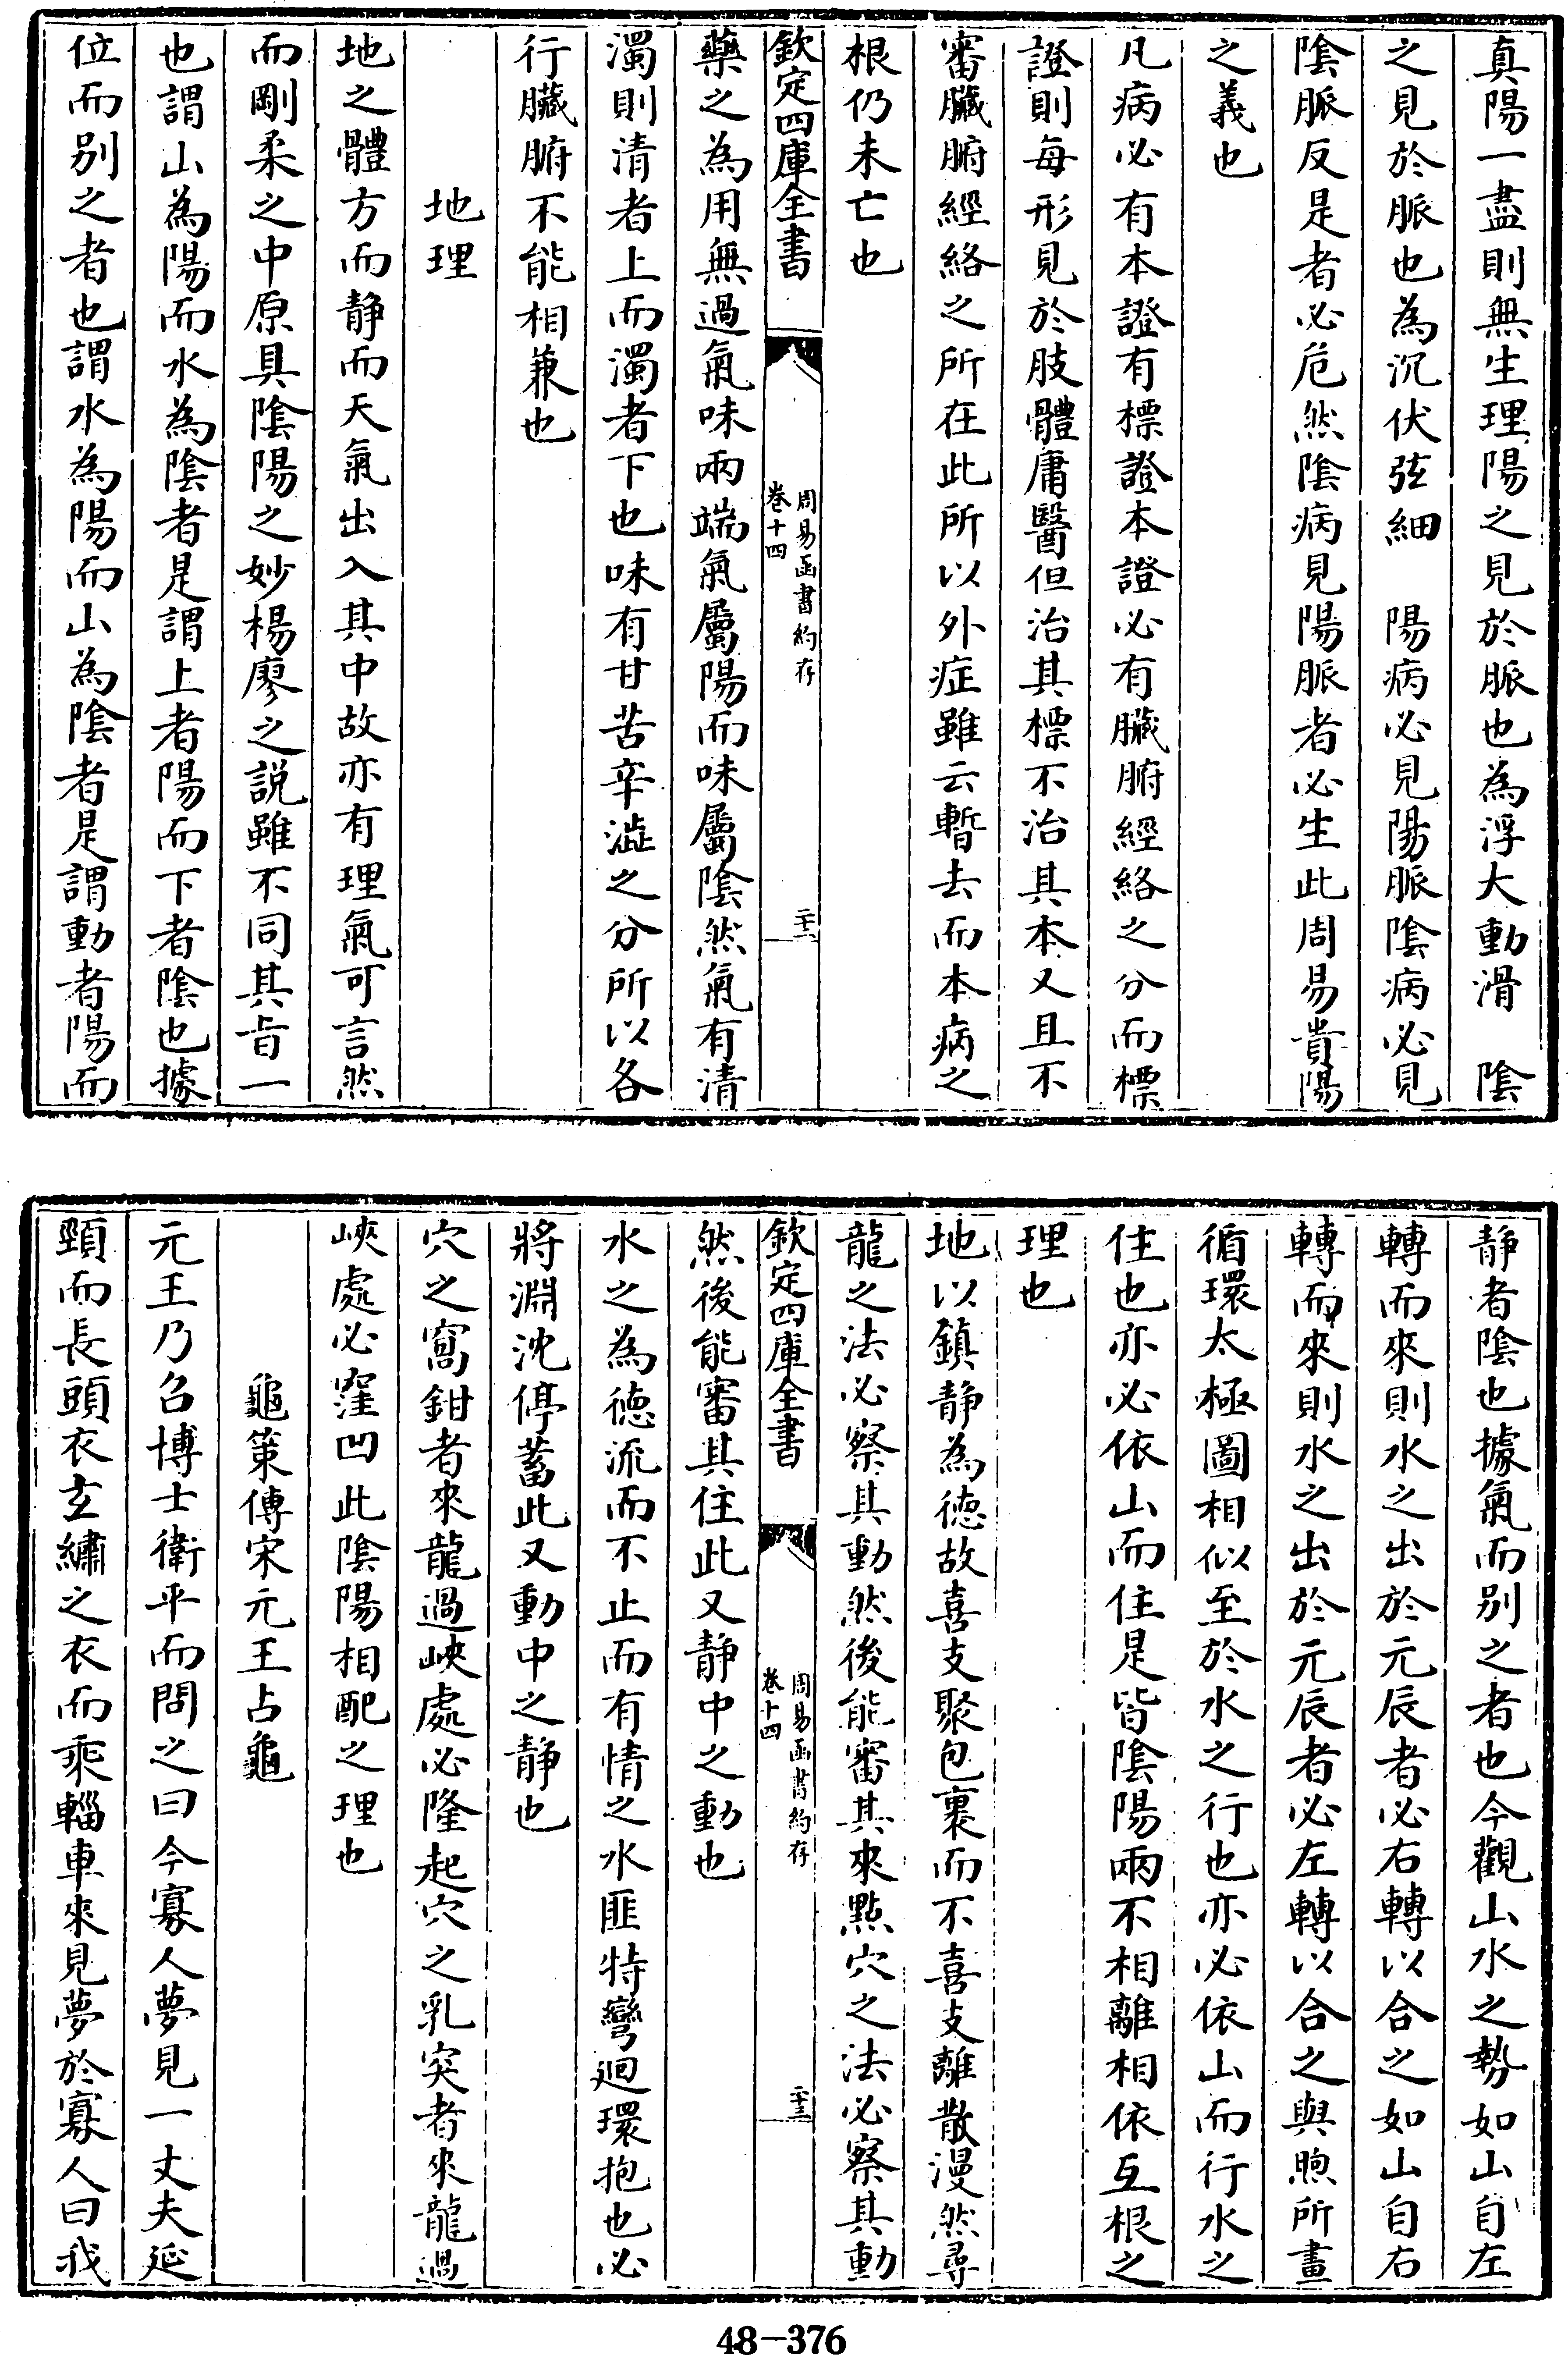 真陽一盡則無生理陽之見於脈也為浮大動滑　陰
之見於脈也為沉伏弦細　陽病必見陽脈陰病必見
陰脈反是者必危然陰病見陽脈者必生此周易貴陽
之義也
凡病必有本證有標證本證必有臟腑經絡之分而標
證則每形見於肢體庸醫但治其標不治其本又且不
審臟腑經絡之所在此所以外症雖云暫去而本病之
根仍未亡也
欽定四庫全書
周易函書約存
卷十四
二十二
藥之為用無過氣味兩端氣屬陽而味屬陰然氣有清
濁則清者上而濁者下也味有甘苦辛澁之分所以各
行臟腑不能相兼也
地理
地之體方而静而天氣出入其中故亦有理氣可言然
而剛柔之中原具陰陽之妙楊廖之説雖不同其㫖一
也謂山為陽而水為陰者是謂上者陽而下者陰也據
位而别之者也謂水為陽而山為陰者是謂動者陽而
静者陰也據氣而别之者也今觀山水之勢如山自左
轉而來則水之出於元辰者必右轉以合之如山自右
轉而來則水之出於元辰者必左轉以合之與煦所畫
循環太極圖相似至於水之行也亦必依山而行水之
住也亦必依山而住是皆陰陽兩不相離相依互根之
理也
地以鎮静為徳故喜支聚包裹而不喜支離散漫然尋
龍之法必察其動然後能審其來點穴之法必察其動
欽定四庫全書
周易函書約存
卷十四
二十三
然後能審其住此又静中之動也
水之為徳流而不止而有情之水匪特彎廻環抱也必
將淵沈停蓄此又動中之静也
穴之窩鉗者來龍過峽處必隆起穴之乳突者來龍過
峽處必窪凹此陰陽相配之理也
龜策傳宋元王占龜
元王乃召博士衛平而問之曰今寡人夢見一丈夫延
頸而長頭衣玄繡之衣而乘輜車來見夢於寡人曰我
48-376